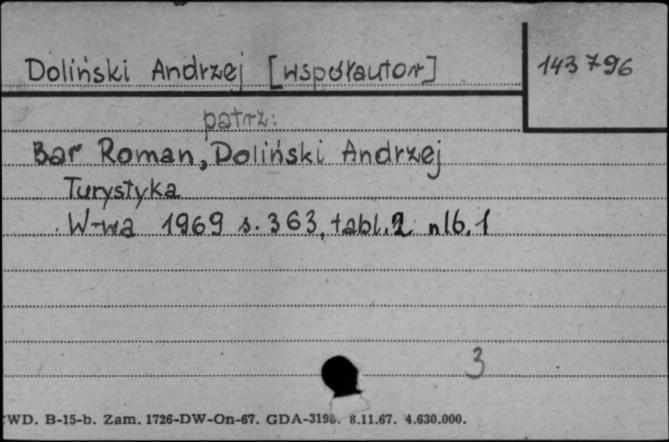 Doliński Andrzej [współautor]
143796
patrz:
Bar Roman, Doliński Andrzej
Turystyka
W-wa 1969 s. 363, tabl. 2 nlb. 1
3
WD. B-15-b. Zam. 1726-DW-On-67. GDA-3198. 8.11.67. 4.630.000.